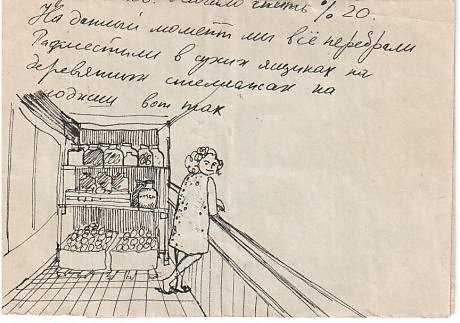 % 20.
На данный момент мы всё перебрали
Разместили в сухих ящиках на
деревянных стеллажах на
лоджии вот так